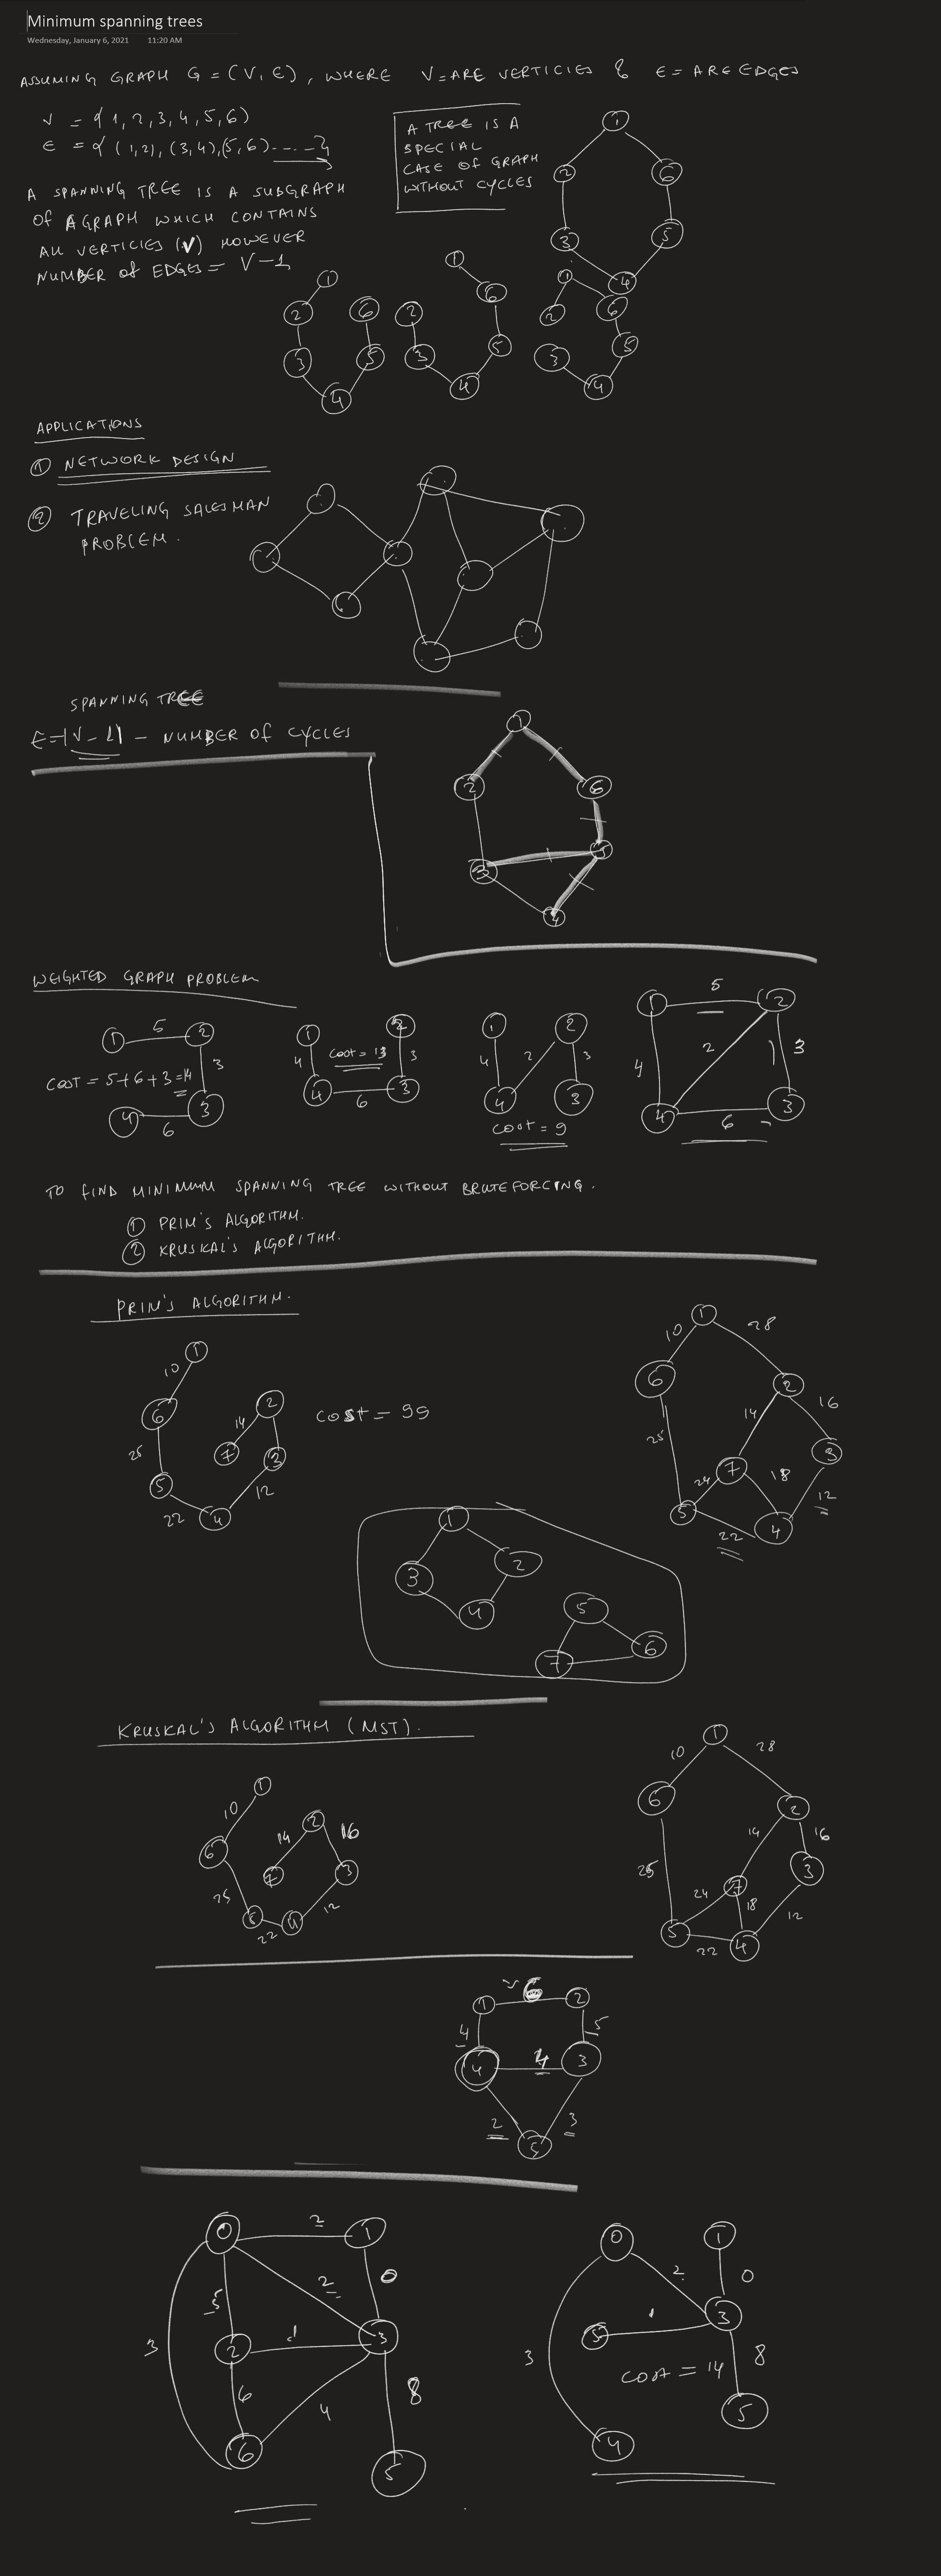 Minimum spanning trees
Wednesday, January 6, 2021 11:20 AM
ASSUMING GRAPH G = (V, E), WHERE V = ARE VERTICIES & E = ARE EDGES
V = {1, 2, 3, 4, 5, 6}
E = {(1,2), (3,4), (5,6) ----}
A TREE IS A
SPECIAL
CASE OF GRAPH
WITHOUT CYCLES
A SPANNING TREE IS A SUBGRAPH
OF A GRAPH WHICH CONTAINS
ALL VERTICIES (V) HOWEVER
NUMBER OF EDGES = V-1
1
2
6
3
5
4
1
2
6
3
5
4
1
2
6
3
5
4
1
2
6
3
5
4
APPLICATIONS
① NETWORK DESIGN
② TRAVELING SALESMAN
PROBLEM.
SPANNING TREE
E=|V-1| - NUMBER OF CYCLES
1
2
6
3
5
4
WEIGHTED GRAPH PROBLEM
1 5 2
3
COST = 5+6+3=14
4 6 3
1 2
4 COST = 13 3
4 6 3
1 2
4 2 3
4 3
COST = 9
1 5 2
4 2 3
4 6 3
TO FIND MINIMUM SPANNING TREE WITHOUT BRUTEFORCING.
① PRIM'S ALGORITHM.
② KRUSKAL'S ALGORITHM.
PRIM'S ALGORITHM.
1
10
6 14 2
COST = 99
25 7 3
5 12
22 4
1
10 28
6 2
14 16
25 7 3
24 18 12
5 22 4
1
3 2
4
5
7 6
KRUSKAL'S ALGORITHM (MST).
1
10
6 14 2 16
7 3
25 12
22
1
10 28
6 2
14 16
25 7 3
24 18 12
5 22 4
1 6 2
4 5
4 4 3
2 3
5
0 2 1
5 2 0
3 2 1 3
6 4 8
6 5
0 1
2 0
1 3
3 COST = 14 8
4 5